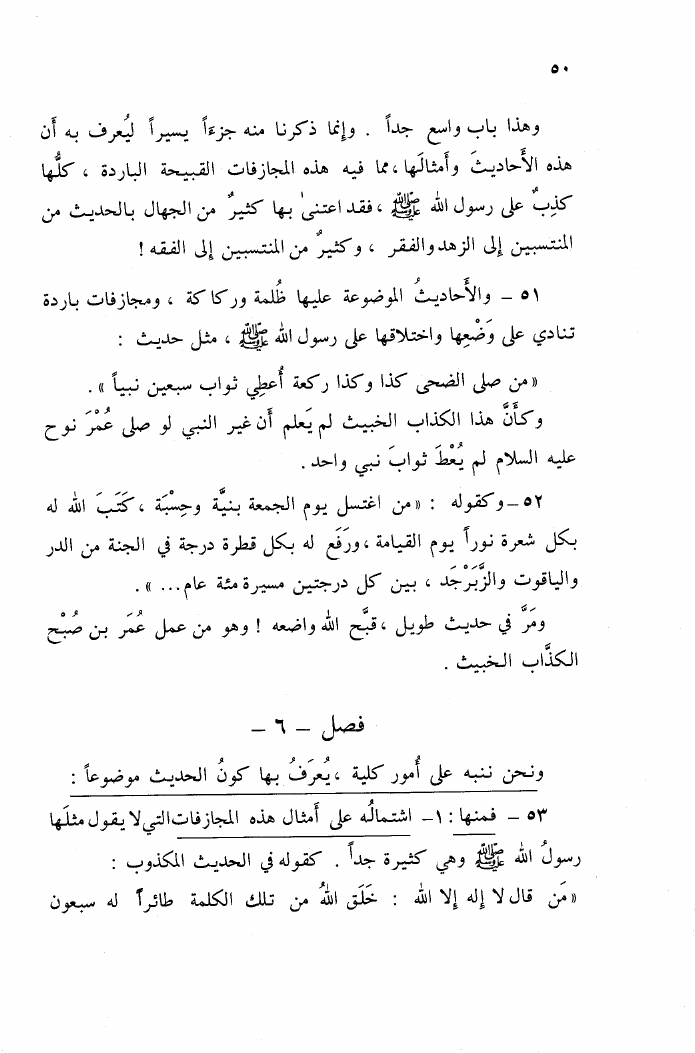 ٥٠
وهذا باب واسع جداً . وإنما ذكرنا منه جزءاً يسيراً ليُعرف به أن
هذه الأَحاديثَ وأَمثالَها ، مما فيه هذه المجازفات القبيحة الباردة ، كلُّها
كذِبٌ على رسول الله ﷺ ، فقد اعتنىٰ بها كثيرٌ من الجهال بالحديث من
المنتسبين إلى الزهد والفقر ، وكثيرٌ من المنتسبين إلى الفقه !
٥١ – والأَحاديثُ الموضوعة عليها ظُلمة وركاكة ، ومجازفات باردة
تنادي على وَضْعِها واختلاقها على رسول الله ﷺ ، مثل حديث :
« من صلى الضحى كذا وكذا ركعة أُعطِي ثواب سبعين نبياً » .
وكأَنَّ هذا الكذاب الخبيث لم يَعلم أَن غير النبي لو صلى عُمْرَ نوح
عليه السلام لم يُعْطَ ثوابَ نبي واحد .
٥٢ – وكقوله : « من اغتسل يوم الجمعة بنيَّة وحِسْبَة ، كَتَبَ الله له
بكل شعرة نوراً يوم القيامة ، ورَفَع له بكل قطرة درجة في الجنة من الدر
والياقوت والزَّبَرْجَد ، بين كل درجتين مسيرة مئة عام... » .
ومَرَّ في حديث طويل ، قبَّح الله واضعه ! وهو من عمل عُمَر بن صُبْح
الكذَّاب الخبيث .
فصل – ٦ –
ونحن ننبه على أُمور كلية ، يُعرَفُ بها كونُ الحديث موضوعاً :
٥٣ – فمنها : ١– اشتمالُه على أَمثال هذه المجازفات التي لا يقول مثلَها
رسولُ الله ﷺ وهي كثيرة جداً . كقوله في الحديث المكذوب :
« مَن قال لا إله إلا الله : خَلَق اللهُ من تلك الكلمة طائراً له سبعون